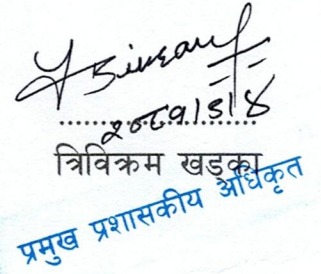 २०८१।३।४
त्रिविक्रम खड्का
प्रमुख प्रशासकीय अधिकृत